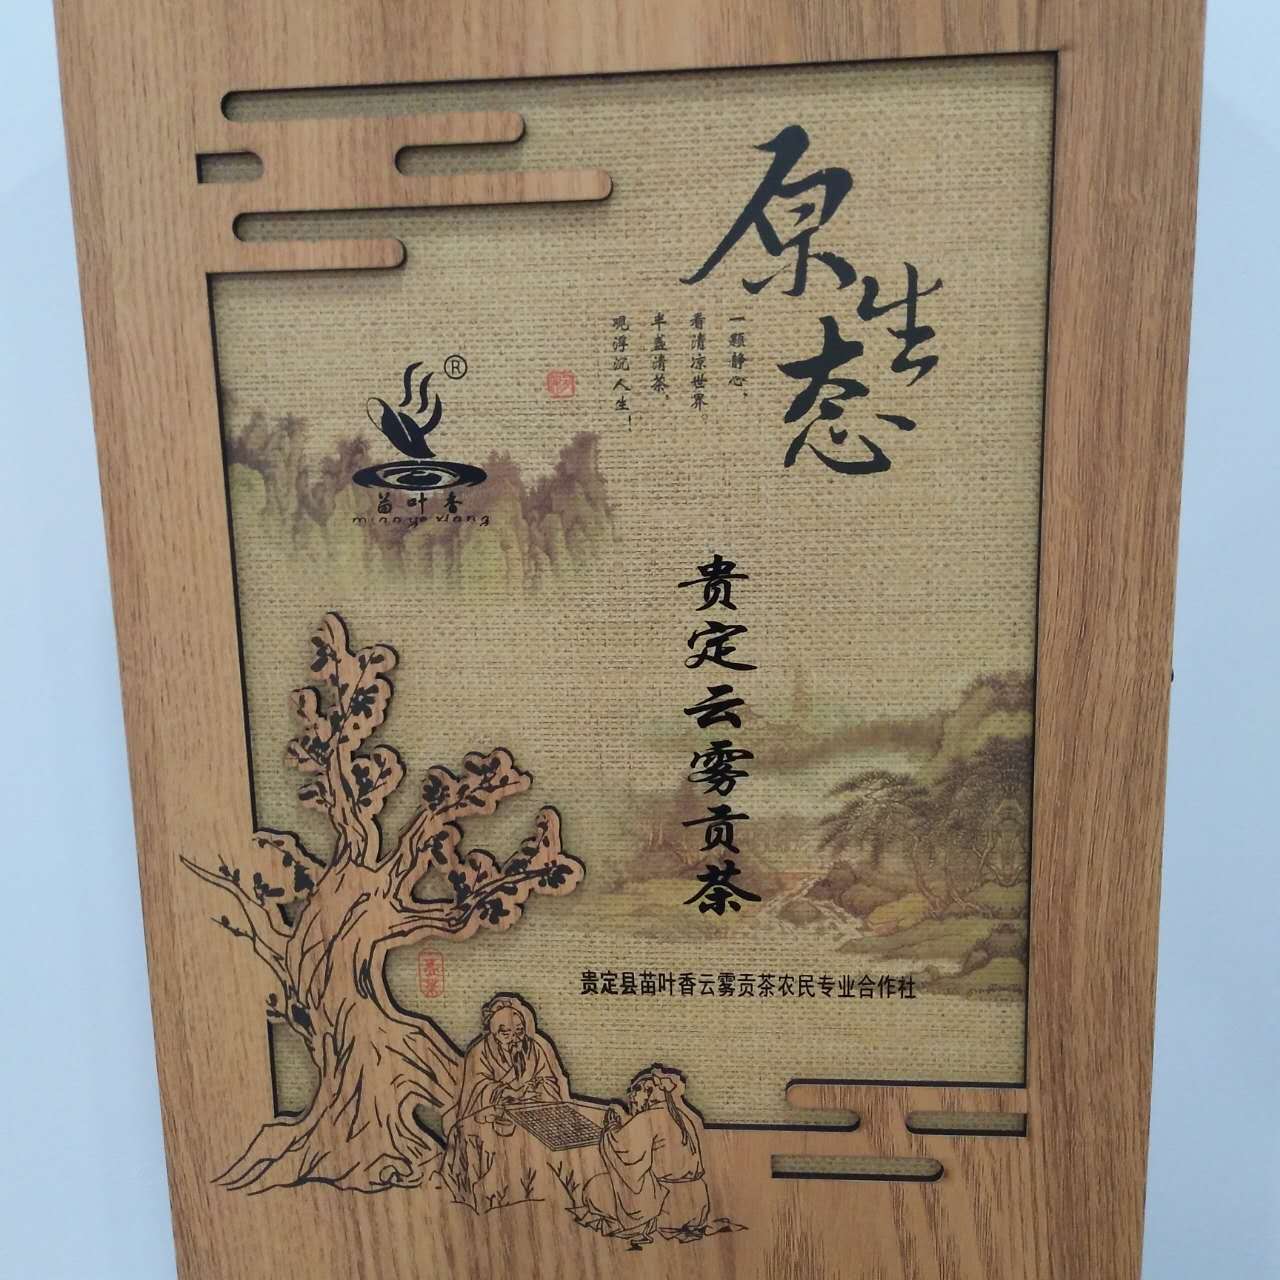 原生态
一颗静心，
看清凉世界。
半盏清茶，
观浮沉人生！
®
苗叶香
miaoyexiang
贵定云雾贡茶
贵定县苗叶香云雾贡茶农民专业合作社